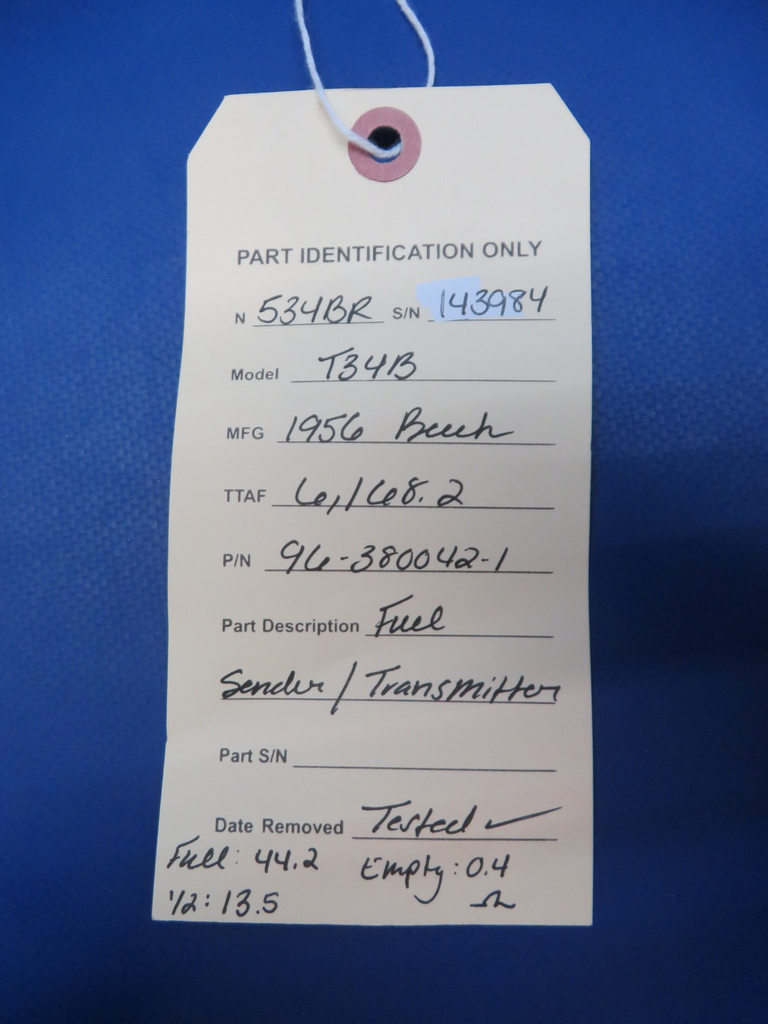 PART IDENTIFICATION ONLY
N 534BR S/N 143984
Model T34B
MFG 1956 Beech
TTAF 6,168.2
P/N 96-380042-1
Part Description Fuel
Sender / Transmitter
Part S/N
Date Removed Tested ✓
Full: 44.2 Empty: 0.4
1/2: 13.5 Ω